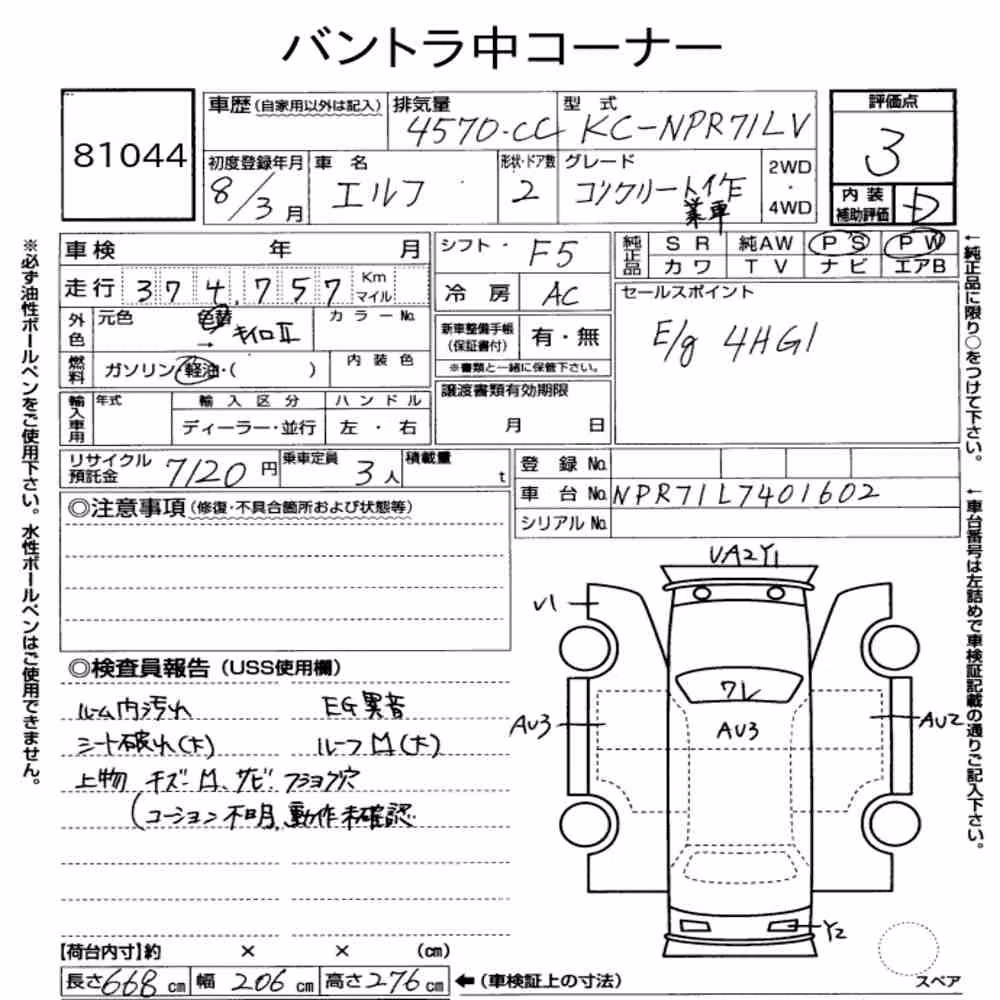 バントラ中コーナー
81044
車歴 (自家用以外は記入)
排気量
4570cc
型式
KC-NPR71LV
評価点
3
初度登録年月
8/3月
車名
エルフ
形状・ドア数
2
グレード
コンクリート作業車
2WD
・
4WD
内装
補助評価
D
車検 年 月
シフト・
F5
純正品
SR 純AW PS PW
カワ TV ナビ エアB
走行 374,757 Km
マイル
冷房
AC
セールスポイント
E/g 4HG1
外色
元色
色替
→ キイロⅡ
カラーNo.
新車整備手帳
(保証書付)
有・無
※書類と一緒に保管下さい。
燃料
ガソリン・軽油・( )
内装色
譲渡書類有効期限
月 日
輸入車用
年式
輸入区分
ハンドル
ディーラー・並行
左・右
リサイクル
預託金
7120円
乗車定員
3人
積載量
t
登録No.
車台No. NPR71L7401602
シリアルNo.
◎注意事項 (修復・不具合箇所および状態等)
◎検査員報告 (USS使用欄)
ルーム内汚れ EG異音
シート破れ(大) ルーフM(大)
上物 キズ M、サビ
コーション不明、動作未確認
UA2Y1
V1
ワレ
AU3
AU3
AU2
Y2
スペア
【荷台内寸】約 × × (cm)
長さ668cm 幅206cm 高さ276cm ←(車検証上の寸法)
※必ず油性ボールペンをご使用下さい。水性ボールペンはご使用できません。
←純正品に限り○をつけて下さい。
←車台番号は左詰めで車検証記載の通りご記入下さい。